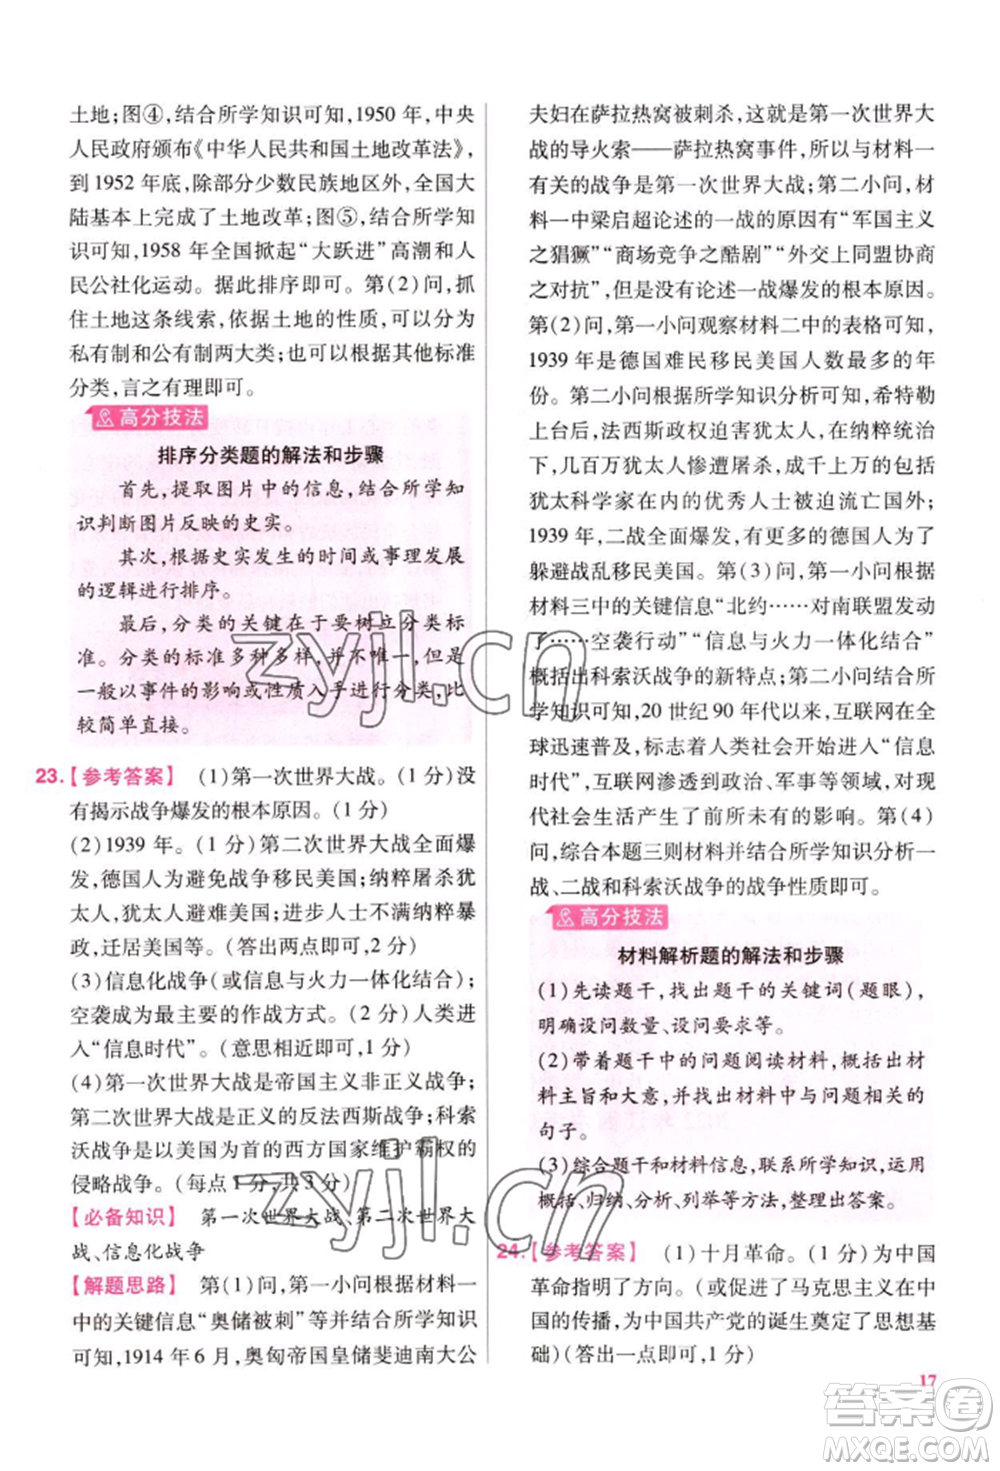 土地;图④,结合所学知识可知,1950 年,中央
人民政府颁布《中华人民共和国土地改革法》,
到 1952 年底,除部分少数民族地区外,全国大
陆基本上完成了土地改革;图⑤,结合所学知
识可知,1958 年全国掀起“大跃进”高潮和人
民公社化运动。据此排序即可。第(2)问,抓
住土地这条线索,依据土地的性质,可以分为
私有制和公有制两大类;也可以根据其他标准
分类,言之有理即可。
高分技法
排序分类题的解法和步骤
首先,提取图片中的信息,结合所学知
识判断图片反映的史实。
其次,根据史实发生的时间或事理发展
的逻辑进行排序。
最后,分类的关键在于要树立分类标
准。分类的标准多种多样,并不唯一,但是
一般以事件的影响或性质入手进行分类,比
较简单直接。
23.【参考答案】 (1)第一次世界大战。(1 分)没
有揭示战争爆发的根本原因。(1 分)
(2)1939 年。(1 分)第二次世界大战全面爆
发,德国人为避免战争移民美国;纳粹屠杀犹
太人,犹太人避难美国;进步人士不满纳粹暴
政,迁居美国等。(答出两点即可,2 分)
(3)信息化战争(信息与火力一体化结合);
空袭成为最主要的作战方式。(2 分)人类进
入“信息时代”。(意思相近即可,1 分)
(4)第一次世界大战是帝国主义非正义战争;
第二次世界大战是正义的反法西斯战争;科索
沃战争是以美国为首的西方国家维护霸权的
侵略战争。(每点 1 分,共 3 分)
【必备知识】 第一次世界大战、第二次世界大
战、信息化战争
【解题思路】 第(1)问,第一小问根据材料一
中的关键信息“奥储被刺”等并结合所学知识
可知,1914 年 6 月,奥匈帝国皇储斐迪南大公
夫妇在萨拉热窝被刺杀,这就是第一次世界大
战的导火索——萨拉热窝事件,所以与材料一
有关的战争是第一次世界大战;第二小问,材
料一中梁启超论述的一战的原因有“军国主义
之猖獗”“商场竞争之酷剧”“外交上同盟协商
之对抗”,但是没有论述一战爆发的根本原因。
第(2)问,第一小问观察材料二中的表格可知,
1939 年是德国难民移民美国人数最多的年
份。第二小问根据所学知识分析可知,希特勒
上台后,法西斯政权迫害犹太人,在纳粹统治
下,几百万犹太人惨遭屠杀,成千上万的包括
犹太科学家在内的优秀人士被迫流亡国外;
1939 年,二战全面爆发,有更多的德国人为了
躲避战乱移民美国。第(3)问,第一小问根据
材料三中的关键信息“北约……对南联盟发动
了……空袭行动”“信息与火力一体化结合”
概括出科索沃战争的新特点;第二小问结合所
学知识可知,20 世纪 90 年代以来,互联网在全
球迅速普及,标志着人类社会开始进入“信息
时代”,互联网渗透到政治、军事等领域,对现
代战争产生了前所未有的影响。第(4)
问,综合本题三则材料并结合所学知识分析一
战、二战和科索沃战争的战争性质即可。
高分技法
材料解析题的解法和步骤
(1)先读题干,找出题干的关键词(题眼),
明确设问数量、设问要求等。
(2)带着题干中的问题阅读材料,概括出材
料主旨和大意,并找出材料中与设问相关的
句子。
(3)综合题干和材料信息,联系所学知识,运用
概括、归纳、分析、列举等方法,整理出答案。
24.【参考答案】 (1)十月革命。(1 分)为中国
革命指明了方向。(或促进了马克思主义在中
国的传播,为中国共产党的诞生奠定了思想基
础)(答出一点即可,1 分)
17
zyjl.cn
zyjl.cn
答案圈
MXQE.COM